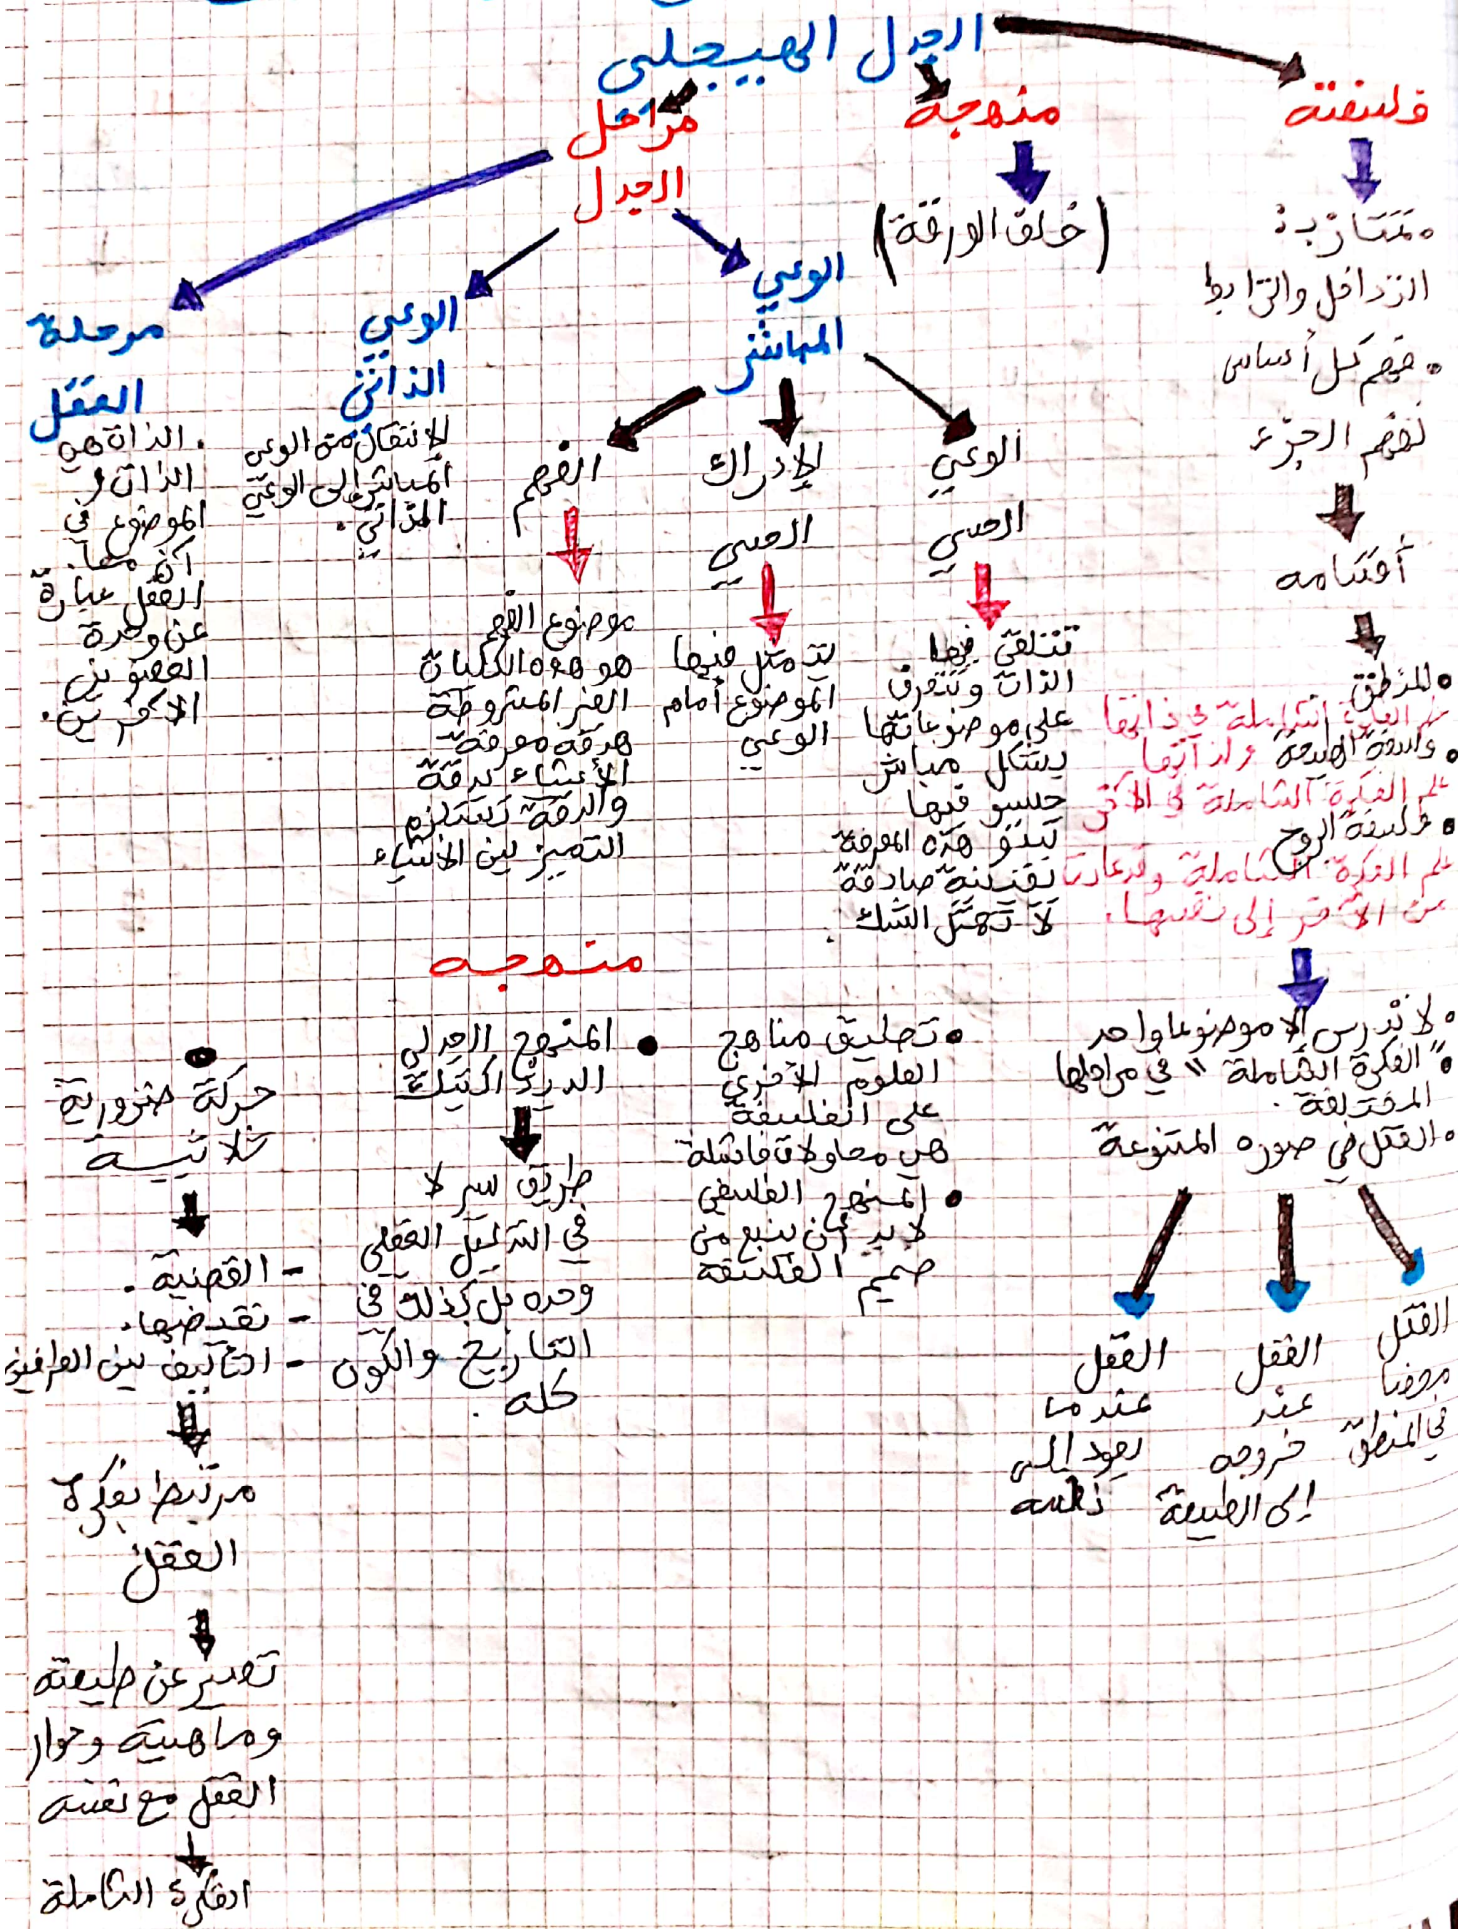 الجدل الهيجلي
فلسفته
منهجه
مراحل
الجدل
تمتاز بـ:
التداخل والترابط
فهم كل أساس
لفهم الجزء
أقسامه
المنطق
علم الفكرة الشاملة في ذاتها
ولذاتها
فلسفة الطبيعة
علم الفكرة الشاملة في الآخر
فلسفة الروح
علم الفكرة الشاملة وقد عادت
من الآخر إلى نفسها.
لا تدرس إلا موضوعا واحد
"الفكرة الشاملة" في مراحلها
المختلفة.
العقل في صوره المتنوعة
العقل
محضا
في المنطق
العقل
عند
خروجه
إلى الطبيعة
العقل
عندما
يعود إلى
نفسه
(خلف الورقة)
الوعي
المباشر
الوعي
الحسي
تتلقى فيها
الذات وتتعرف
على موضوعاتها
بشكل مباشر
حسي فيها
تبدو هذه المعرفة
يقينية صادقة
لا تحتمل الشك.
الإدراك
الحسي
يتمثل فيها
الموضوع أمام
الوعي
الفهم
موضوع الفهم
هو هذه الكليات
الغير المشروطة
هدفه معرفة
الأشياء بدقة
والدقة تستلزم
التمييز بين الأشياء
الوعي
الذاتي
الانتقال من الوعي
المباشر إلى الوعي
الذاتي.
مرحلة
العقل
الذات هي
الذات و
الموضوع في
آن معا.
العقل عبارة
عن وحدة
العضوين
الآخرين.
منهجه
تطبيق مناهج
العلوم الأخرى
على الفلسفة
هي محاولات فاشلة
المنهج الفلسفي
لا بد أن ينبع من
صميم الفلسفة
المنهج الجدلي
الديالكتيك
طريق سير لا
في التحليل العقلي
وحده بل كذلك في
التاريخ والكون
كله.
حركة ضرورية
ثلاثية
- القضية.
- نقيضها.
- التأليف بين الطرفين
مرتبط بفكرة
العقل
تعبير عن طبيعته
وماهيته وحوار
العقل مع نفسه
الفكرة الشاملة